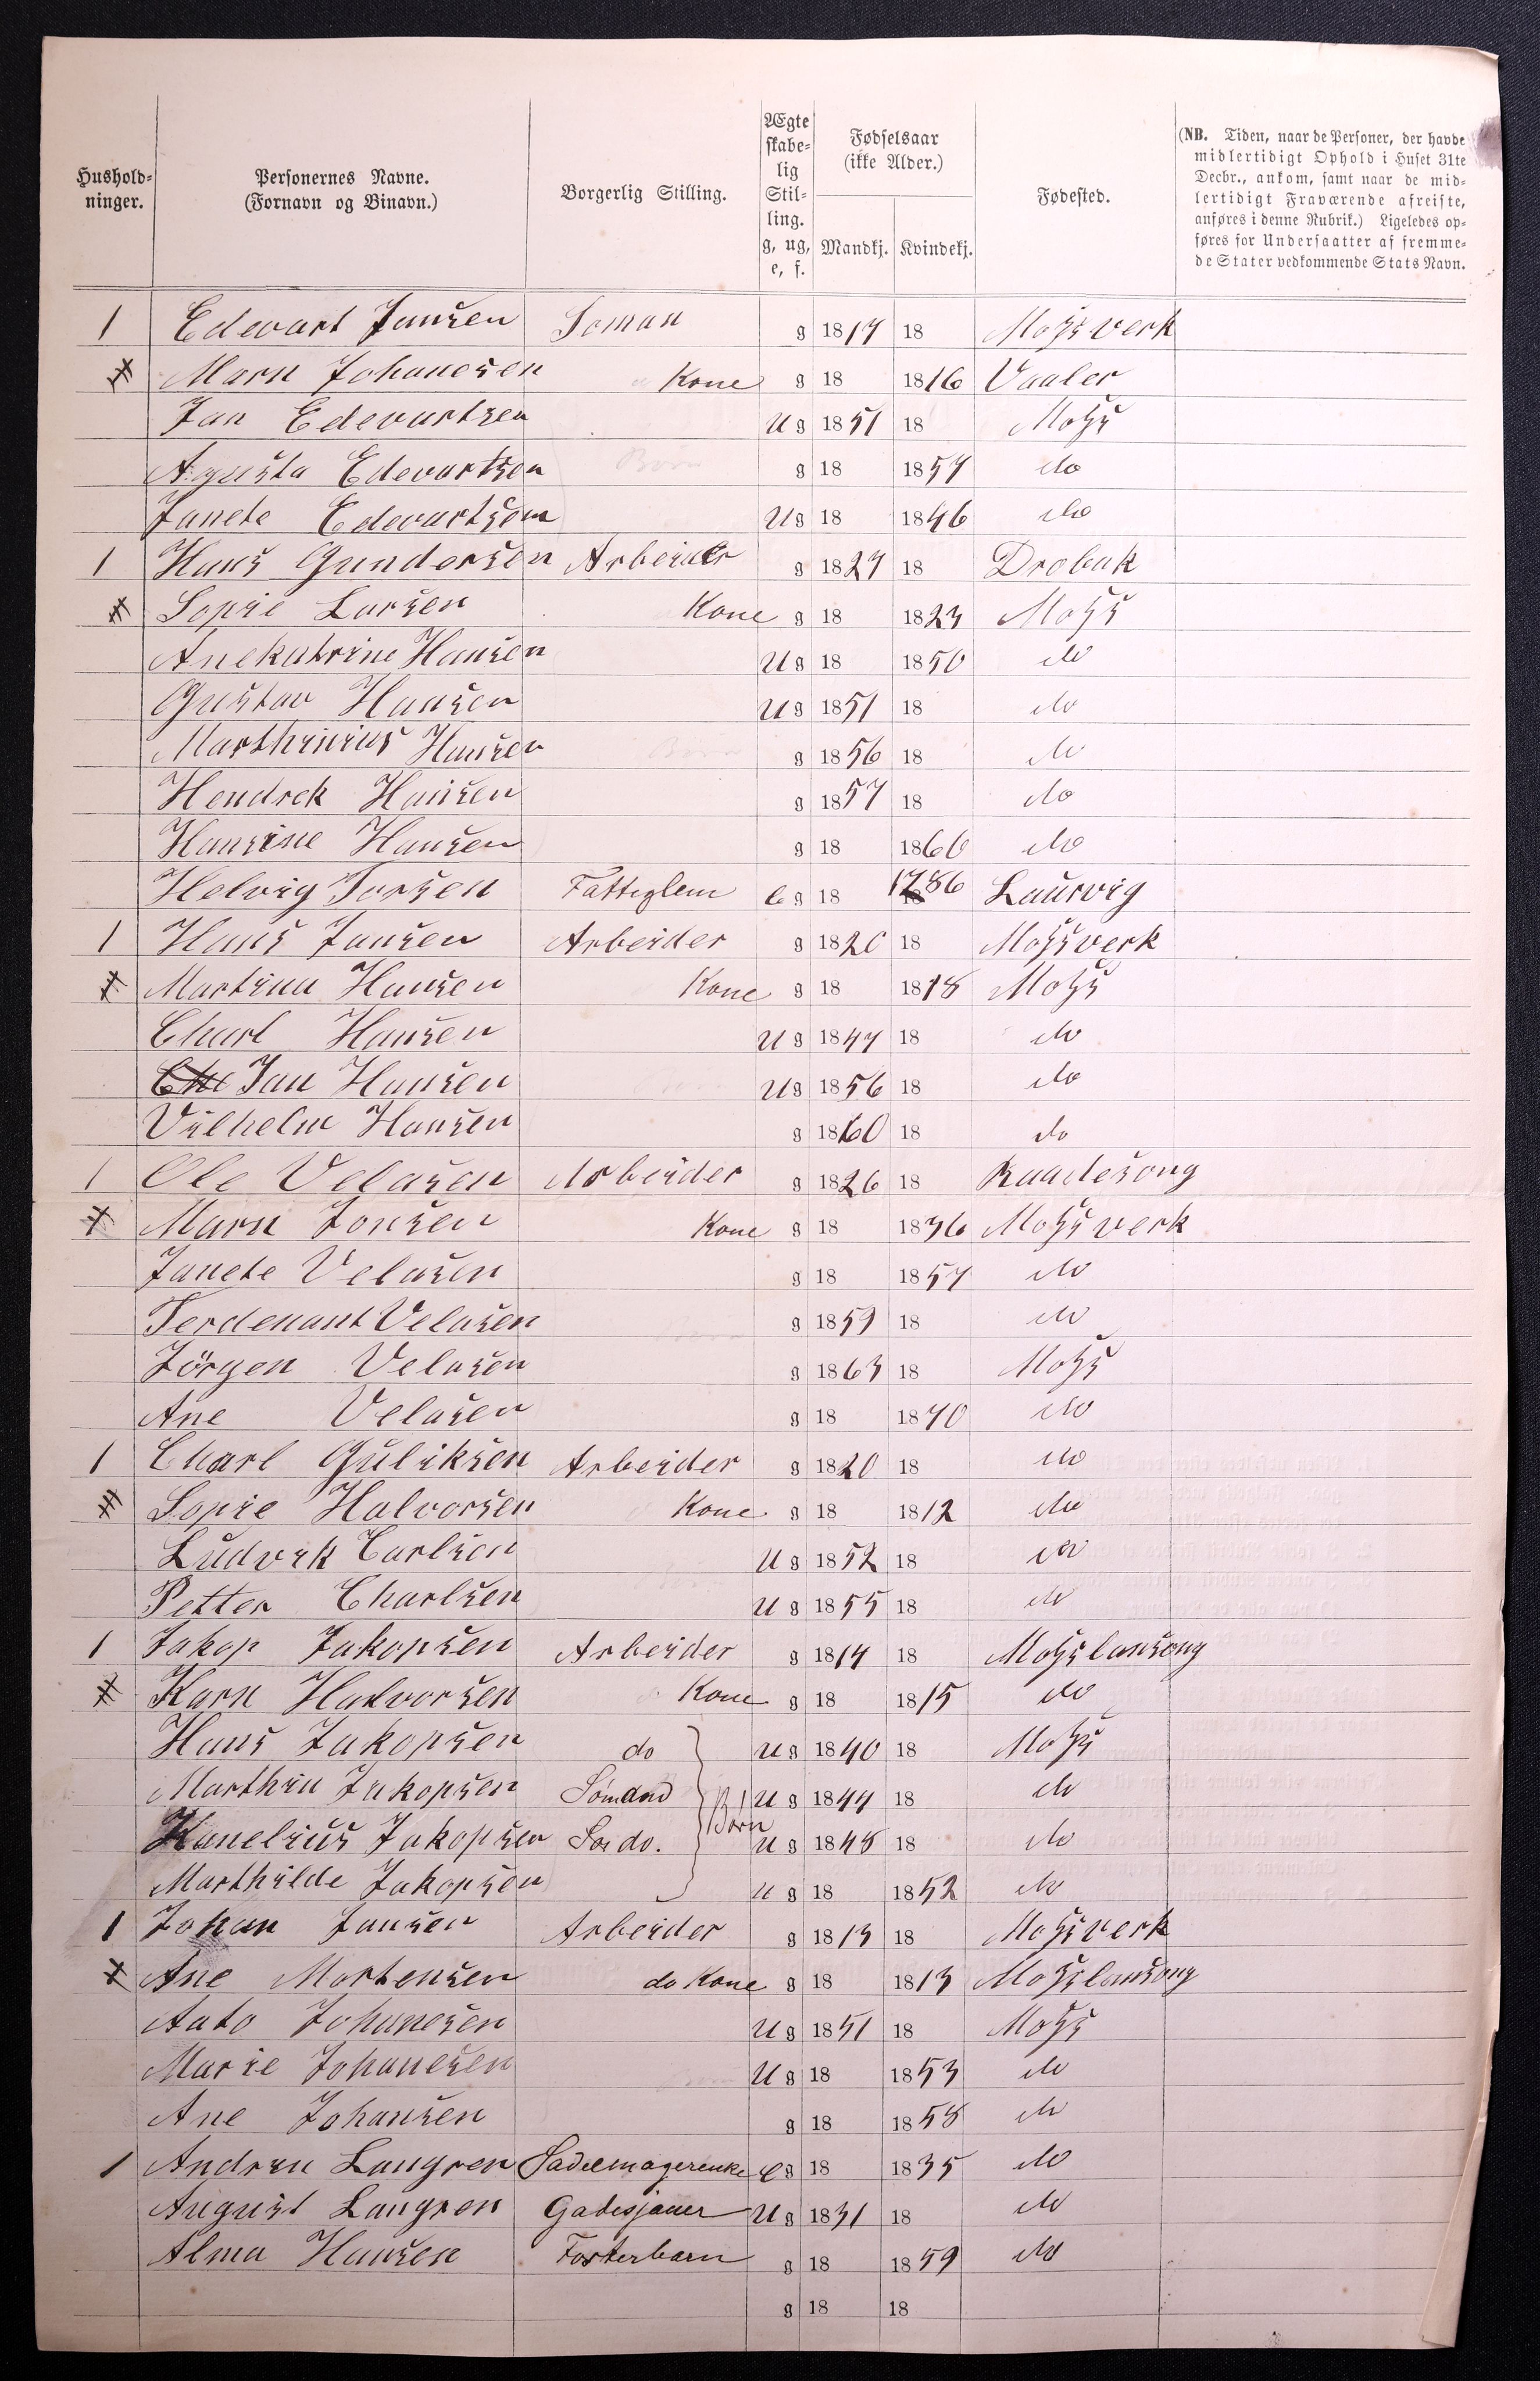 Hushold-
ninger.
Personernes Navne.
(Fornavn og Binavn.)
Borgerlig Stilling.
Ægte
skabe-
lig
Stil-
ling.
g, ug,
e, f.
Fødselsaar
(ikke Alder.)
Mandkj. Kvindekj.
Fødested.
(NB. Tiden, naar de Personer, der havde
midlertidigt Ophold i Huset 31te
Decbr., ankom, samt naar de mid-
lertidigt Fraværende afreiste,
anføres i denne Rubrik.) Ligeledes op-
føres for Undersaatter af fremme-
de Stater vedkommende Stats Navn.
1 Edevart Jansen Soman g 1817 18 Moss verk
Marn Johanesen Kone g 18 1816 Vaaler
Jan Edevartsen U g 1851 18 Moss
Agusta Edevartsen g 18 1857 do
Janete Edevartsen U g 18 1846 do
1 Hans Gundersen Arbeider g 1827 18 Drobak
Sopie Larsen Kone g 18 1823 Moss
Anekatrine Hansen U g 18 1850 do
Gustav Hansen U g 1851 18 do
Marthinius Hansen g 1856 18 do
Hendrek Hansen g 1857 18 do
Hansine Hansen g 18 1860 do
Helvig Torsen Fattiglem e g 18 1786 Laurvig
1 Hans Jansen Arbeider g 1820 18 Mossverk
Martina Hansen Kone g 18 1818 Moss
Charl Hansen U g 1847 18 do
Jan Hansen U g 1856 18 do
Vilhelm Hansen g 1860 18 do
1 Ole Velasen Arbeider g 1826 18 Raadesong
Marn Jonsen Kone g 18 1836 Moss verk
Janete Velasen g 18 1857 do
Ferdenant Velasen g 1859 18 do
Jörgen Velasen g 1863 18 Moss
Ane Velasen g 18 1870 do
1 Charl Guliksen Arbeider g 1820 18 do
Sopie Halvorsen Kone g 18 1812 do
Ludvik Carlsen U g 1852 18 do
Petter Charlsen U g 1855 18 do
1 Jakop Jakopsen Arbeider g 1814 18 Mosslansong
Karn Halvorsen Kone g 18 1815 do
Hans Jakopsen do U g 1840 18 Moss
Marthin Jakopsen Sømand Børn U g 1844 18 do
Kanelius Jakopsen do. U g 1848 18 do
Marthilde Jakopsen U g 18 1852 do
1 Johan Jansen Arbeider g 1813 18 Mossverk
Ane Mortensen do Kone g 18 1813 Mosslansong
Aato Johanesen U g 1851 18 Moss
Marie Johanesen U g 18 1853 do
Ane Johansen g 18 1858 do
1 Andren Langren Sadelmagerenke e g 18 1835 do
August Langren Gadesjauer U g 1831 18 do
Alma Hansen Fosterbarn g 18 1859 do
g 18 18